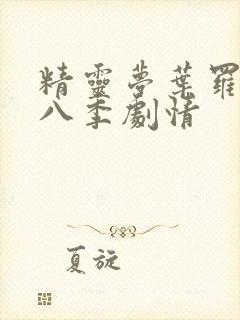 精靈夢葉羅
八季劇情
夏旋